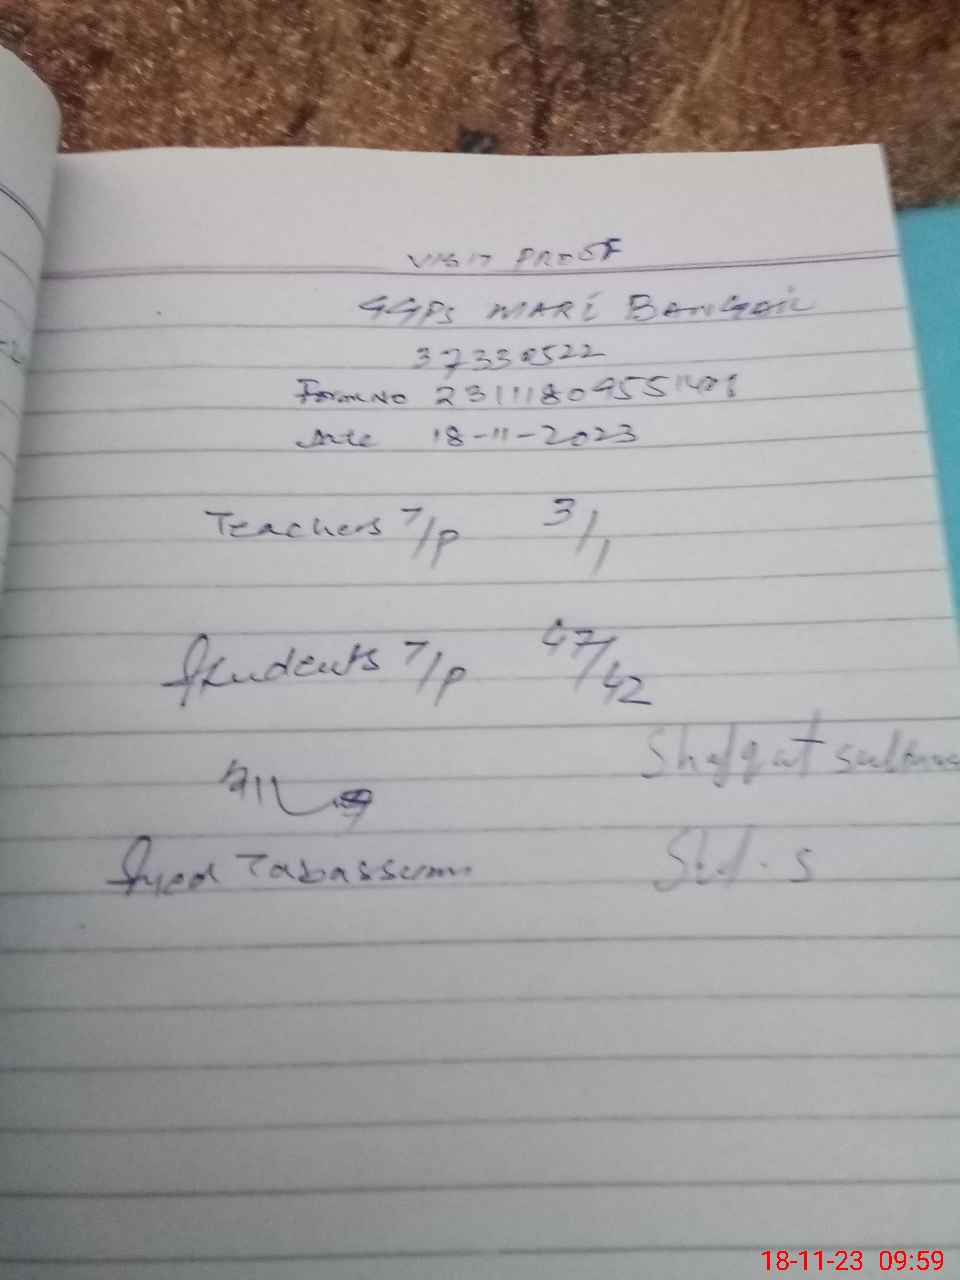 VISIT PROOF
GGPS MARI BANGAIL
37330522
Form No 23111809551408
Date 18-11-2023
Teachers T/P 3/1
Students T/P 47/42
Shafqat sultana
Syed Tabassum
Std. S
18-11-23 09:59